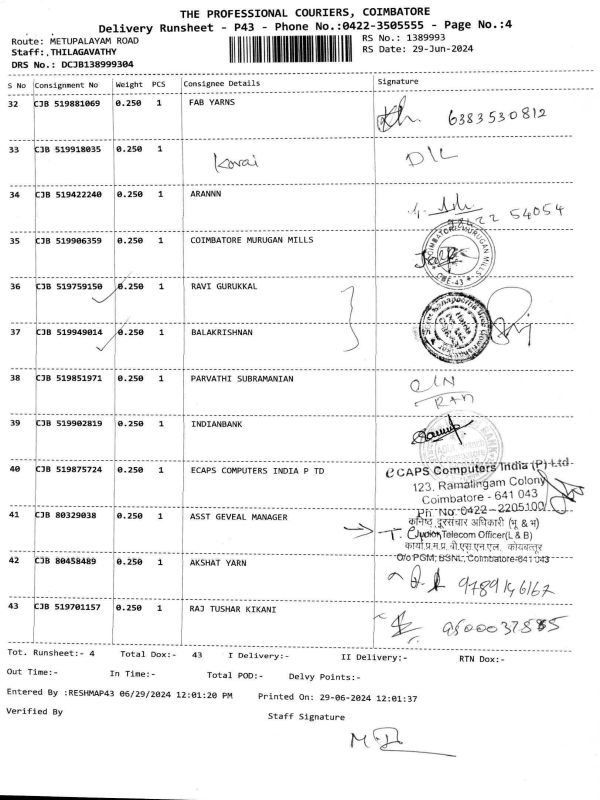 THE PROFESSIONAL COURIERS, COIMBATORE
Delivery Runsheet - P43 - Phone No.:0422-3505555 - Page No.:4
Route: METUPALAYAM ROAD
RS No.: 1389993
Staff:,THILAGAVATHY
RS Date: 29-Jun-2024
DRS No.: DCJB138999304
S No Consignment No Weight PCS Consignee Details Signature
32 CJB 519881069 0.250 1 FAB YARNS
6383530812
33 CJB 519918035 0.250 1
Kovai
34 CJB 519422240 0.250 1 ARANNN
54054
35 CJB 519906359 0.250 1 COIMBATORE MURUGAN MILLS
COIMBATORE MURUGAN MILLS
CBE-43
36 CJB 519759150 0.250 1 RAVI GURUKKAL
37 CJB 519949014 0.250 1 BALAKRISHNAN
38 CJB 519851971 0.250 1 PARVATHI SUBRAMANIAN
39 CJB 519902819 0.250 1 INDIANBANK
40 CJB 519875724 0.250 1 ECAPS COMPUTERS INDIA P TD
eCAPS Computers India (P) Ltd.
123, Ramalingam Colony
Coimbatore - 641 043
Ph No.0422 - 2205100
41 CJB 80329038 0.250 1 ASST GEVEAL MANAGER
कनिष्ठ दूरसंचार अधिकारी (भू & भ)
Junior Telecom Officer(L & B)
कार्या.प्र.म.प्र. बी.एस.एन.एल. कोयम्बत्तूर
O/o PGM, BSNL, Coimbatore-641 043
42 CJB 80458489 0.250 1 AKSHAT YARN
9789146167
43 CJB 519701157 0.250 1 RAJ TUSHAR KIKANI
Tot. Runsheet:- 4 Total Dox:- 43 I Delivery:- II Delivery:- RTN Dox:-
Out Time:- In Time:- Total POD:- Delvy Points:-
Entered By :RESHMAP43 06/29/2024 12:01:20 PM Printed On: 29-06-2024 12:01:37
Verified By Staff Signature